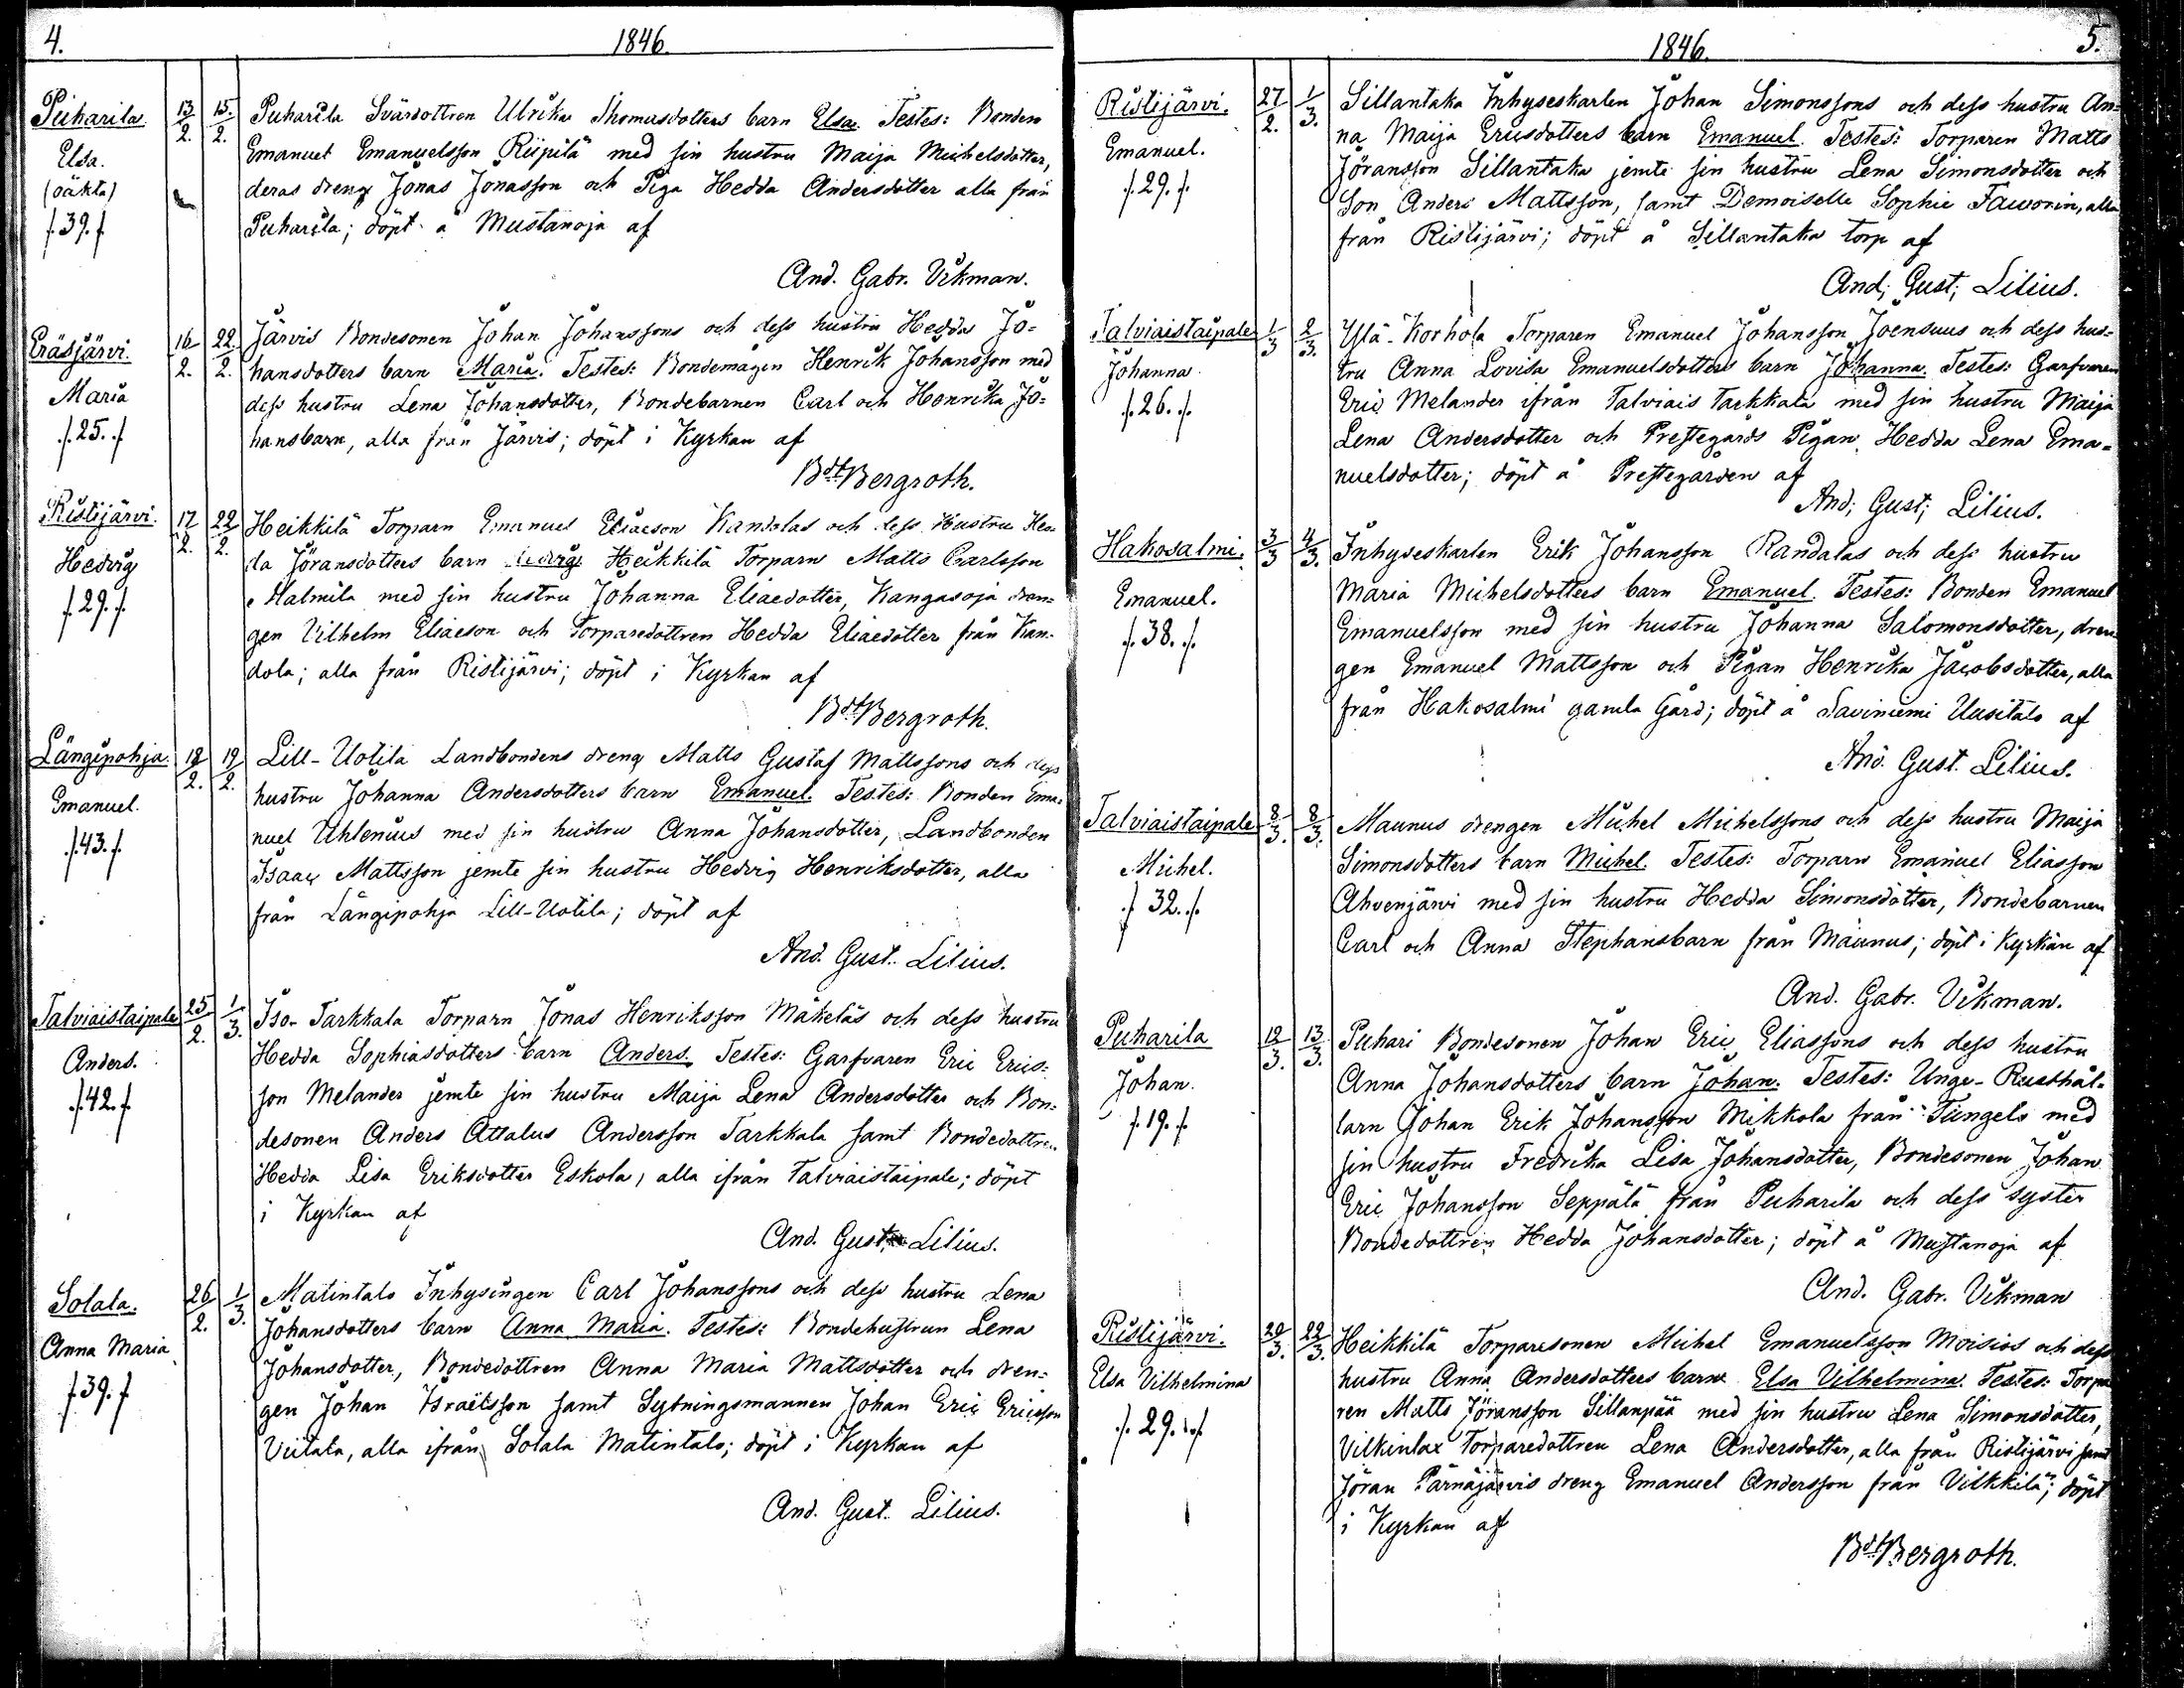 4.
1846.
Puharila
Elsa.
(oäkta)
f. 39. f
13/2.
15./2.
Puharila Svärdottren Ulrika Thomasdotters barn Elsa. Testes: Bonden
Emanuel Emanuelsson Riipilä med sin hustru Maija Michelsdotter,
deras dreng Jonas Jonasson och Piga Hedda Andersdotter alla från
Puharila; döpt å Mustanoja af
And. Gabr. Vikman.
Eräsjärvi.
Maria
f. 25. f
16/2.
22./2.
Järvis Bondesonen Johan Johanssons och dess hustru Hedda Jo=
hansdotters barn Maria. Testes: Bondemågen Henrik Johansson med
dess hustru Lena Johansdotter, Bondebarnen Carl och Henrika Jo=
hansbarn, alla från Järvis; döpt i Kyrkan af
Bdt Bergroth.
Ristijärvi.
Hedvig
f. 29. f.
17/2.
22/2.
Heikkilä Torparn Emanuel Eliaeson Kandolas och dess Hustru Hed
da Jöransdotters barn Hedvig Heikkilä Torparn Matts Carlsson
Malmila med sin hustru Johanna Eliaedotter, Kangasoja dren=
gen Vilhelm Eliaeson och Torparedottren Hedda Eliaedotter från Kan-
dola; alla från Ristijärvi; döpt i Kyrkan af
Bdt Bergroth.
Längipohja
Emanuel.
f. 43. f.
18/2.
19/2.
Lill-Uotila Landbondens dreng Matts Gustaf Mattssons och dess
hustru Johanna Andersdotters barn Emanuel. Testes: Bonden Ema=
nuel Uhlenius med sin hustru Anna Johansdotter, Landbonden
Isaac Mattsson jemte sin hustru Hedvig Henriksdotter, alla
från Längipohja Lill-Uotila; döpt af
And. Gust. Lilius.
Talviaistaipale
Anders.
f. 42. f.
25/2.
1/3.
Iso-Tarkkala Torparn Jonas Henriksson Mäkeläs och dess hustru
Hedda Sophiasdotters barn Anders. Testes: Garfvaren Eric Erics=
son Melander jemte sin hustru Maija Lena Andersdotter och Bon=
desonen Anders Attalus Andersson Tarkkala samt Bondedottren
Hedda Lisa Eriksdotter Eskola, alla ifrån Talviaistaipale; döpt
i Kyrkan af
And. Gust. Lilius.
Solala.
Anna Maria
f. 39. f
26/2.
1/3.
Matintalo Inhysingen Carl Johanssons och dess hustru Lena
Johansdotters barn Anna Maria. Testes: Bondehustrun Lena
Johansdotter, Bondedottren Anna Maria Mattsdotter och dren=
gen Johan Israelsson samt Sytningsmannen Johan Eric Ericsson
Viitala, alla ifrån Solala Matintalo; döpt i Kyrkan af
And. Gust. Lilius.
1846.
5.
Ristijärvi.
Emanuel.
f. 29. f.
27/2.
1/3.
Sillantaka Inhyseskarlen Johan Simonssons och dess hustru An=
na Maija Ericsdotters barn Emanuel. Testes: Torparen Matts
Jöransson Sillantaka jemte sin hustru Lena Simonsdotter och
Son Anders Mattsson, samt Demoiselle Sophie Faworin, alla
från Ristijärvi; döpt å Sillantaka torp af
And; Gust; Lilius.
Talviaistaipale
Johanna
f. 26. f.
1/3
2/3.
Ylä-Korhola Torparen Emanuel Johansson Joensuus och dess hus=
tru Anna Lovisa Emanuelsdotters barn Johanna. Testes: Garfvaren
Eric Melander ifrån Talviais Tarkkala med sin hustru Maija
Lena Andersdotter och Prestegårds Pigan Hedda Lena Ema=
nuelsdotter; döpt å Prestegården af
And; Gust; Lilius.
Hakosalmi.
Emanuel.
f. 38. f.
3/3
4/3.
Inhyseskarlen Erik Johansson Randalas och dess hustru
Maria Michelsdotters barn Emanuel. Testes: Bonden Emanuel
Emanuelsson med sin hustru Johanna Salomonsdotter, dren
gen Emanuel Mattsson och Pigan Henrika Jacobsdotter, alla
från Hakosalmi gamla Gård; döpt å Saviniemi Uusitalo af
And. Gust. Lilius.
Talviaistaipale
Michel.
f 32. f.
8/3.
8/3.
Maunus drengen Michel Michelssons och dess hustru Maija
Simonsdotters barn Michel. Testes: Torparn Emanuel Eliasson
Ahvenjärvi med sin hustru Hedda Simonsdotter, Bondebarnen
Carl och Anna Stephansbarn från Maunus; döpt i Kyrkan af
And. Gabr. Vikman.
Puharila
Johan.
f. 19. f.
12/3.
13/3.
Puhari Bondesonen Johan Eric Eliassons och dess hustru
Anna Johansdotters barn Johan. Testes: Unge-Rusthål-
larn Johan Erik Johansson Mikkola från Tungelo med
sin hustru Fredrika Lisa Johansdotter, Bondesonen Johan
Eric Johansson Seppälä från Puharila och dess syster
Bondedottren Hedda Johansdotter; döpt å Mustanoja af
And. Gabr. Vikman
Ristijärvi.
Elsa Vilhelmina
f. 29. f
20/3.
22/3.
Heikkilä Torparesonen Michel Emanuelsson Moisios och dess
hustru Anna Andersdotters barn Elsa Vilhelmina. Testes: Torpa
ren Matts Jöransson Sillanpää med sin hustru Lena Simonsdotter,
Vilkinlax Torparedottren Lena Andersdotter, alla från Ristijärvi samt
Jöran Pärnäjärvis dreng Emanuel Andersson från Vilkkilä; döpt
i Kyrkan af
Bdt Bergroth.